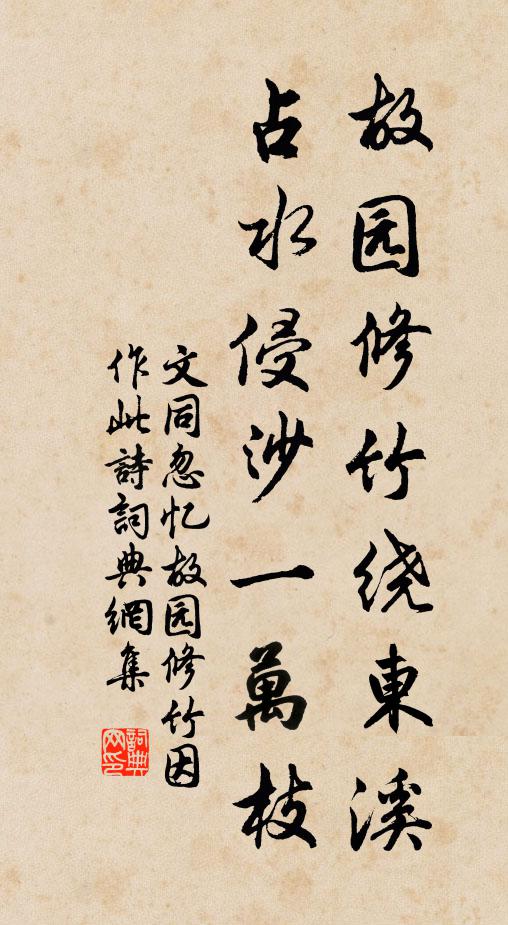 故园修竹绕東溪
占水侵沙一萬枝
文同忽忆故园修竹因
作此詩詞典網集
詞典
网印